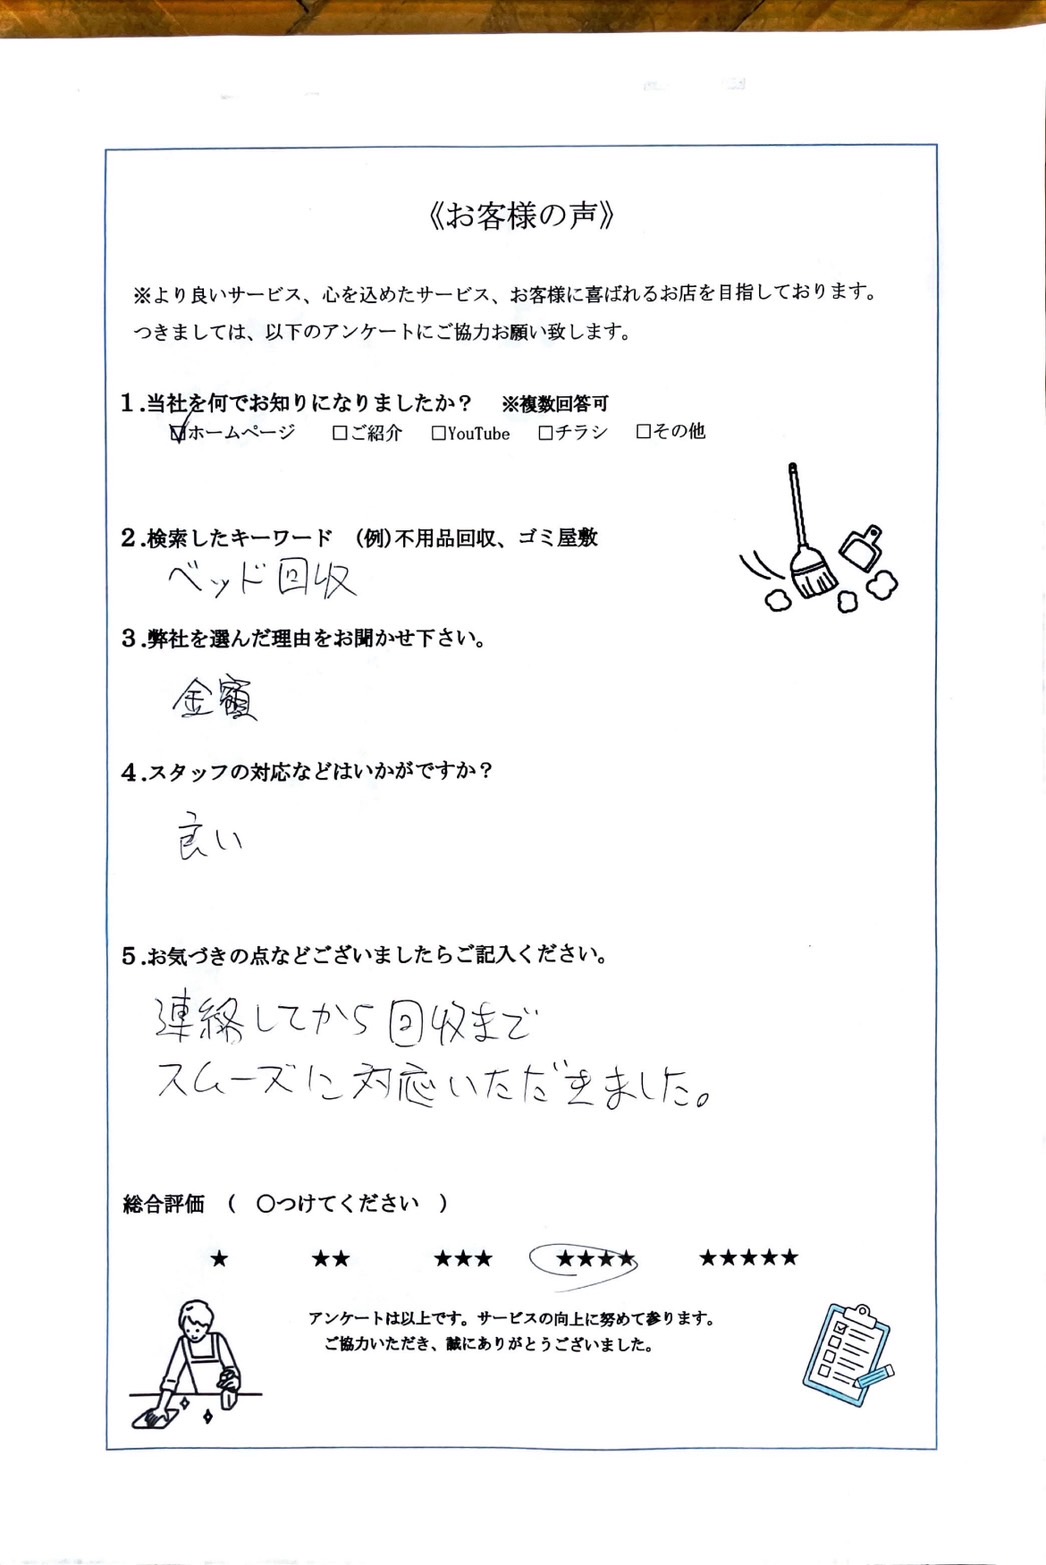 《お客様の声》
※より良いサービス、心を込めたサービス、お客様に喜ばれるお店を目指しております。
つきましては、以下のアンケートにご協力お願い致します。
1.当社を何でお知りになりましたか? ※複数回答可
☑ホームページ □ご紹介 □YouTube □チラシ □その他
2.検索したキーワード (例)不用品回収、ゴミ屋敷
ベッド回収
3.弊社を選んだ理由をお聞かせ下さい。
金額
4.スタッフの対応などはいかがですか?
良い
5.お気づきの点などございましたらご記入ください。
連絡してから回収まで
スムーズに対応いただきました。
総合評価 ( ○つけてください )
★ ★★ ★★★ ★★★★ ★★★★★
アンケートは以上です。サービスの向上に努めて参ります。
ご協力いただき、誠にありがとうございました。